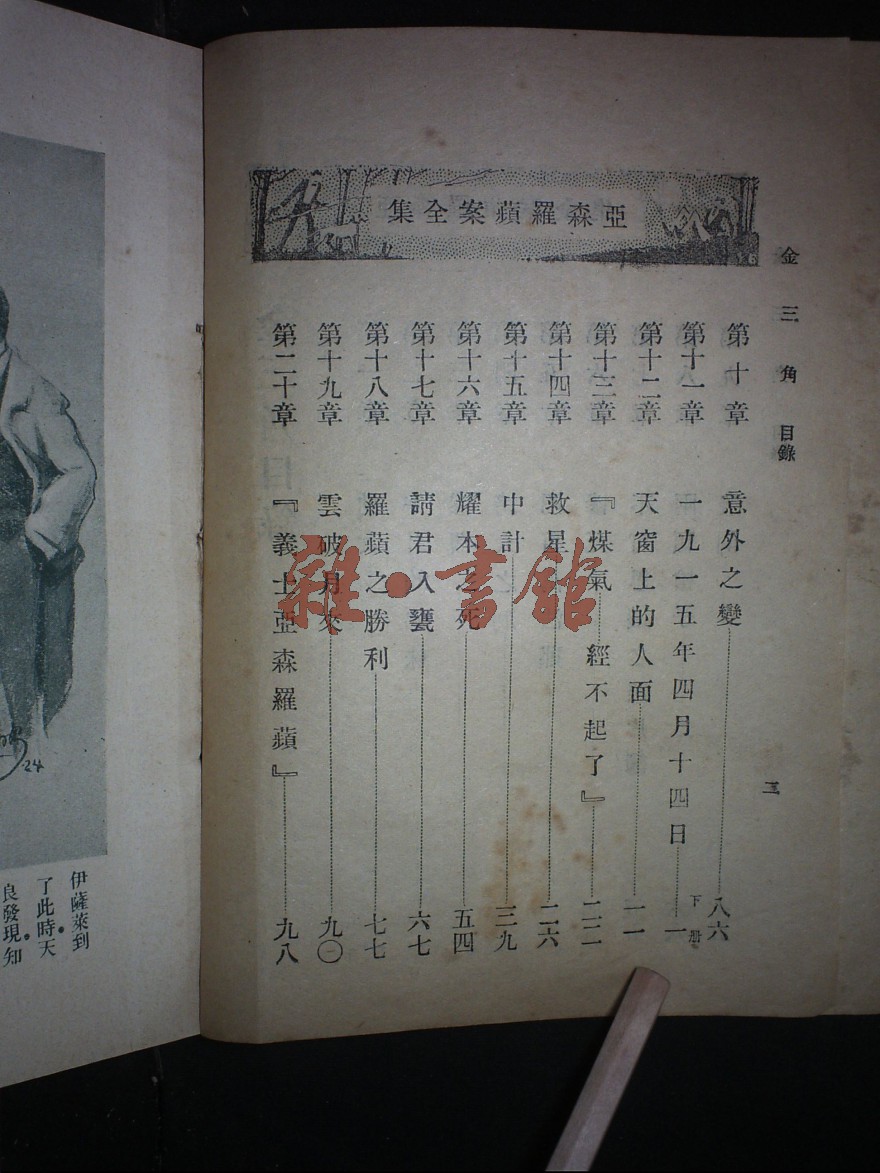 亞森羅蘋案全集
金三角 目錄
三
第十章 意外之變 八六
下册
第十一章 一九一五年四月十四日 一
第十二章 天窗上的人面 一一
第十三章 『煤氣 經不起了』 二二
第十四章 救星 二六
第十五章 中計 三九
第十六章 耀本之死 五四
第十七章 請君入甕 六七
第十八章 羅蘋之勝利 七七
第十九章 雲破月來 九〇
第二十章 『義士亞森羅蘋』 九八
雜·書館
伊薩萊到
了此時天
良發現知
24